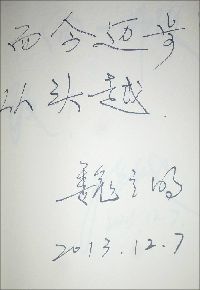 而今迈步
从头越
2013.12.7